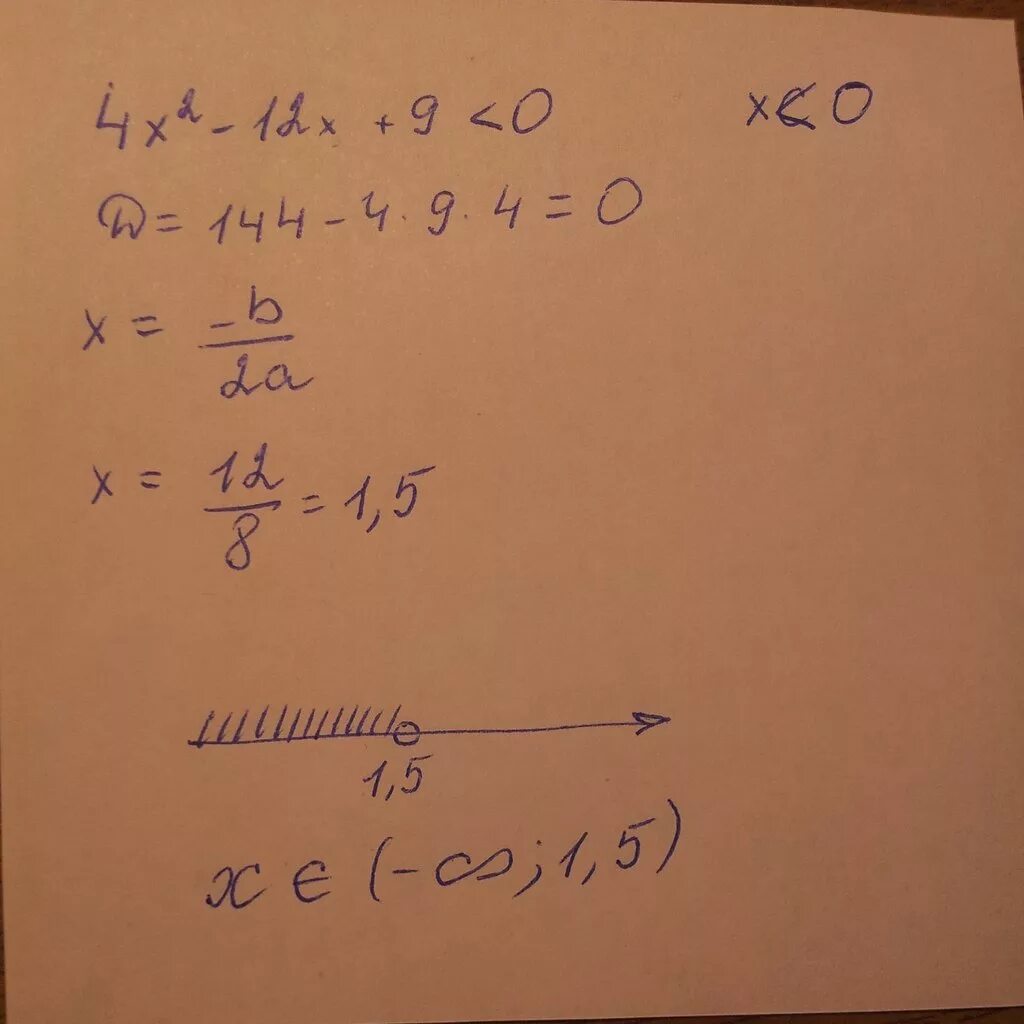 4x² - 12x + 9 < 0
x < 0
D = 144 - 4 · 9 · 4 = 0
x = -b/2a
x = 12/8 = 1,5
1,5
x ∈ (-∞; 1,5)